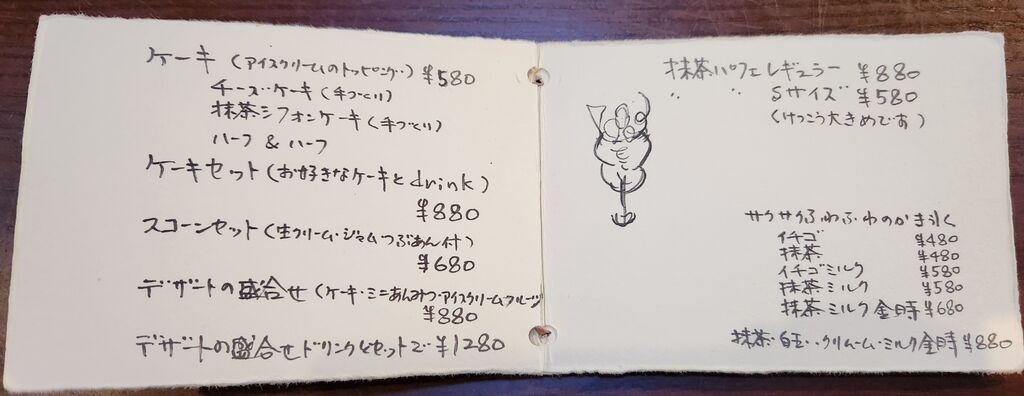 ケーキ (アイスクリームのトッピング) ¥580
チーズケーキ (手づくり)
抹茶シフォンケーキ (手づくり)
ハーフ & ハーフ
ケーキセット (お好きなケーキとdrink)
¥880
スコーンセット (生クリーム・ジャムつぶあん付)
¥680
デザートの盛合せ (ケーキ・ミニあんみつ・アイスクリーム・フルーツ
¥880
デザートの盛合せドリンクとセットで ¥1280
抹茶パフェレギュラー ¥880
〃 〃 Sサイズ ¥580
(けっこう大きめです)
サクサクふわふわのかき氷
イチゴ ¥480
抹茶 ¥480
イチゴミルク ¥580
抹茶ミルク ¥580
抹茶ミルク金時 ¥680
抹茶・白玉・クリーム・ミルク金時 ¥880